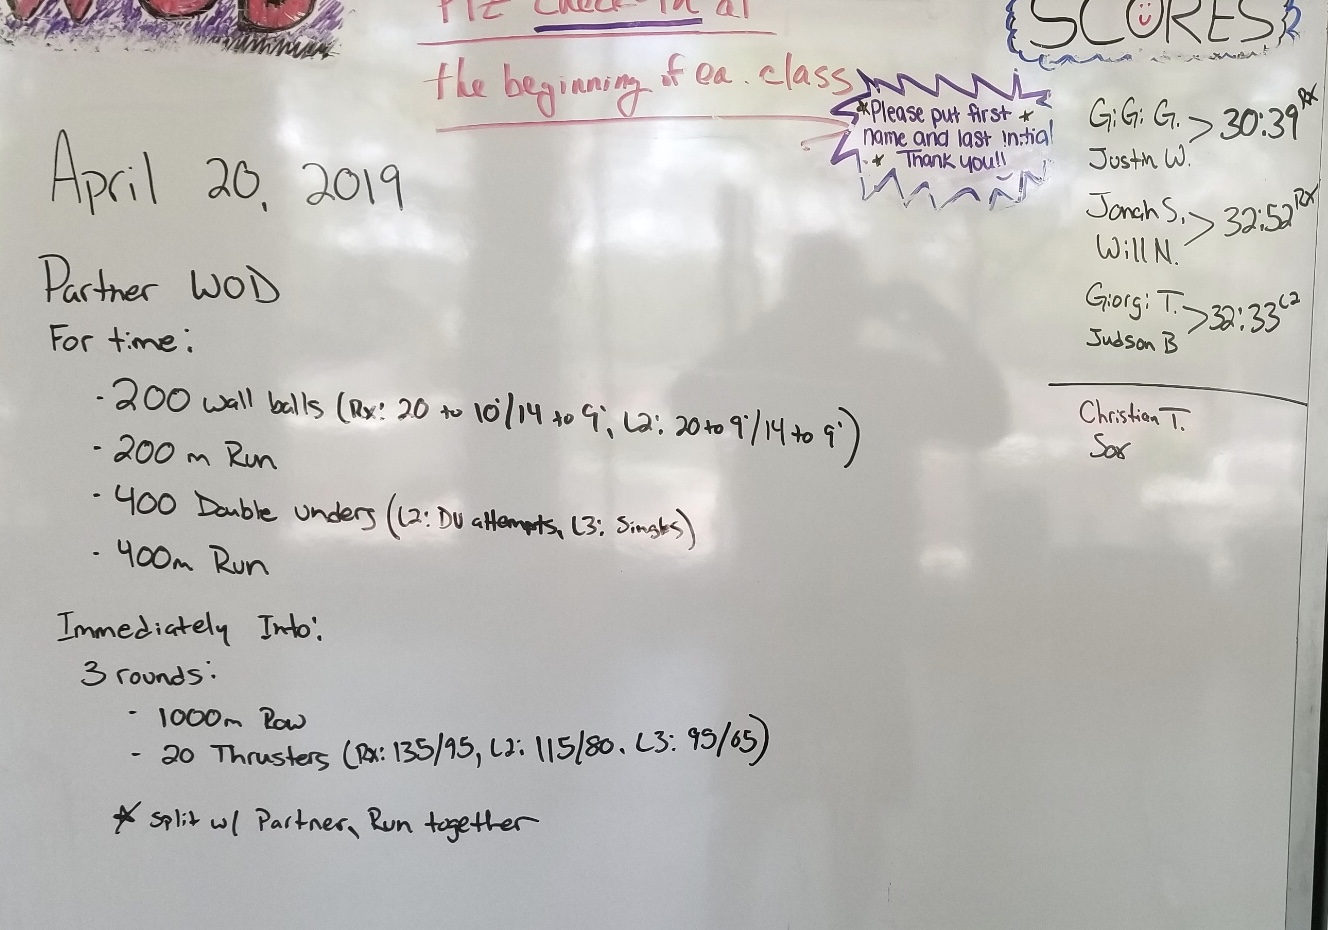 WOD
Plz check-in at
the beginning of ea. class
*Please put first *
name and last initial
* Thank you!!
SCORES
April 20, 2019
Partner WOD
For time:
- 200 wall balls (Rx: 20 to 10'/14 to 9', L2: 20 to 9'/14 to 9')
- 200 m Run
- 400 Double unders (L2: DU attempts, L3: Singles)
- 400m Run
Immediately Into:
3 rounds:
- 1000m Row
- 20 Thrusters (Rx: 135/95, L2: 115/80, L3: 95/65)
* Split w/ Partner, Run together
GiGi G.
Justin W. > 30:39 Rx
Jonah S.
Will N. > 32:52 Rx
Giorgi T.
Judson B > 32:33 L2
Christian T.